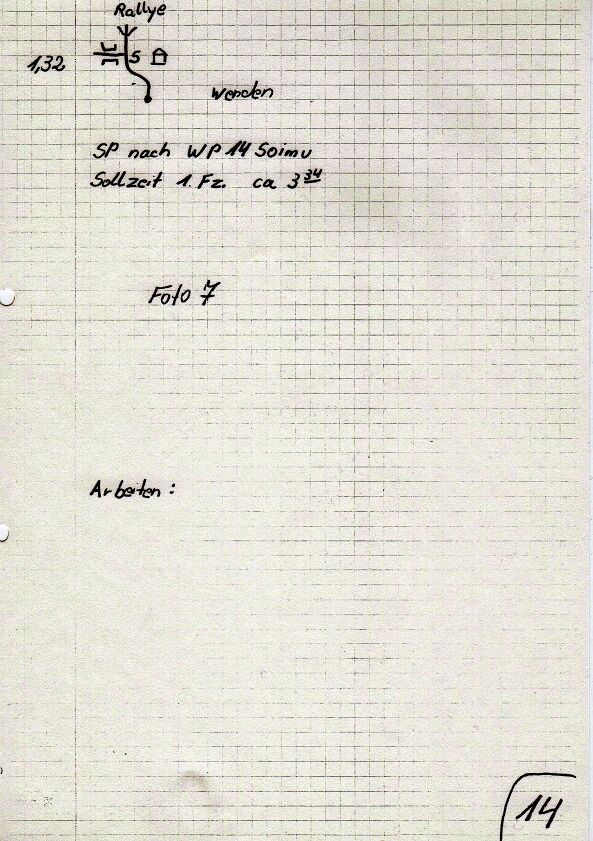 Rallye
1,32
S
Wenden
SP nach WP 14 Soimu
Sollzeit 1. Fz. ca 3 34
Foto 7
Arbeiten :
14